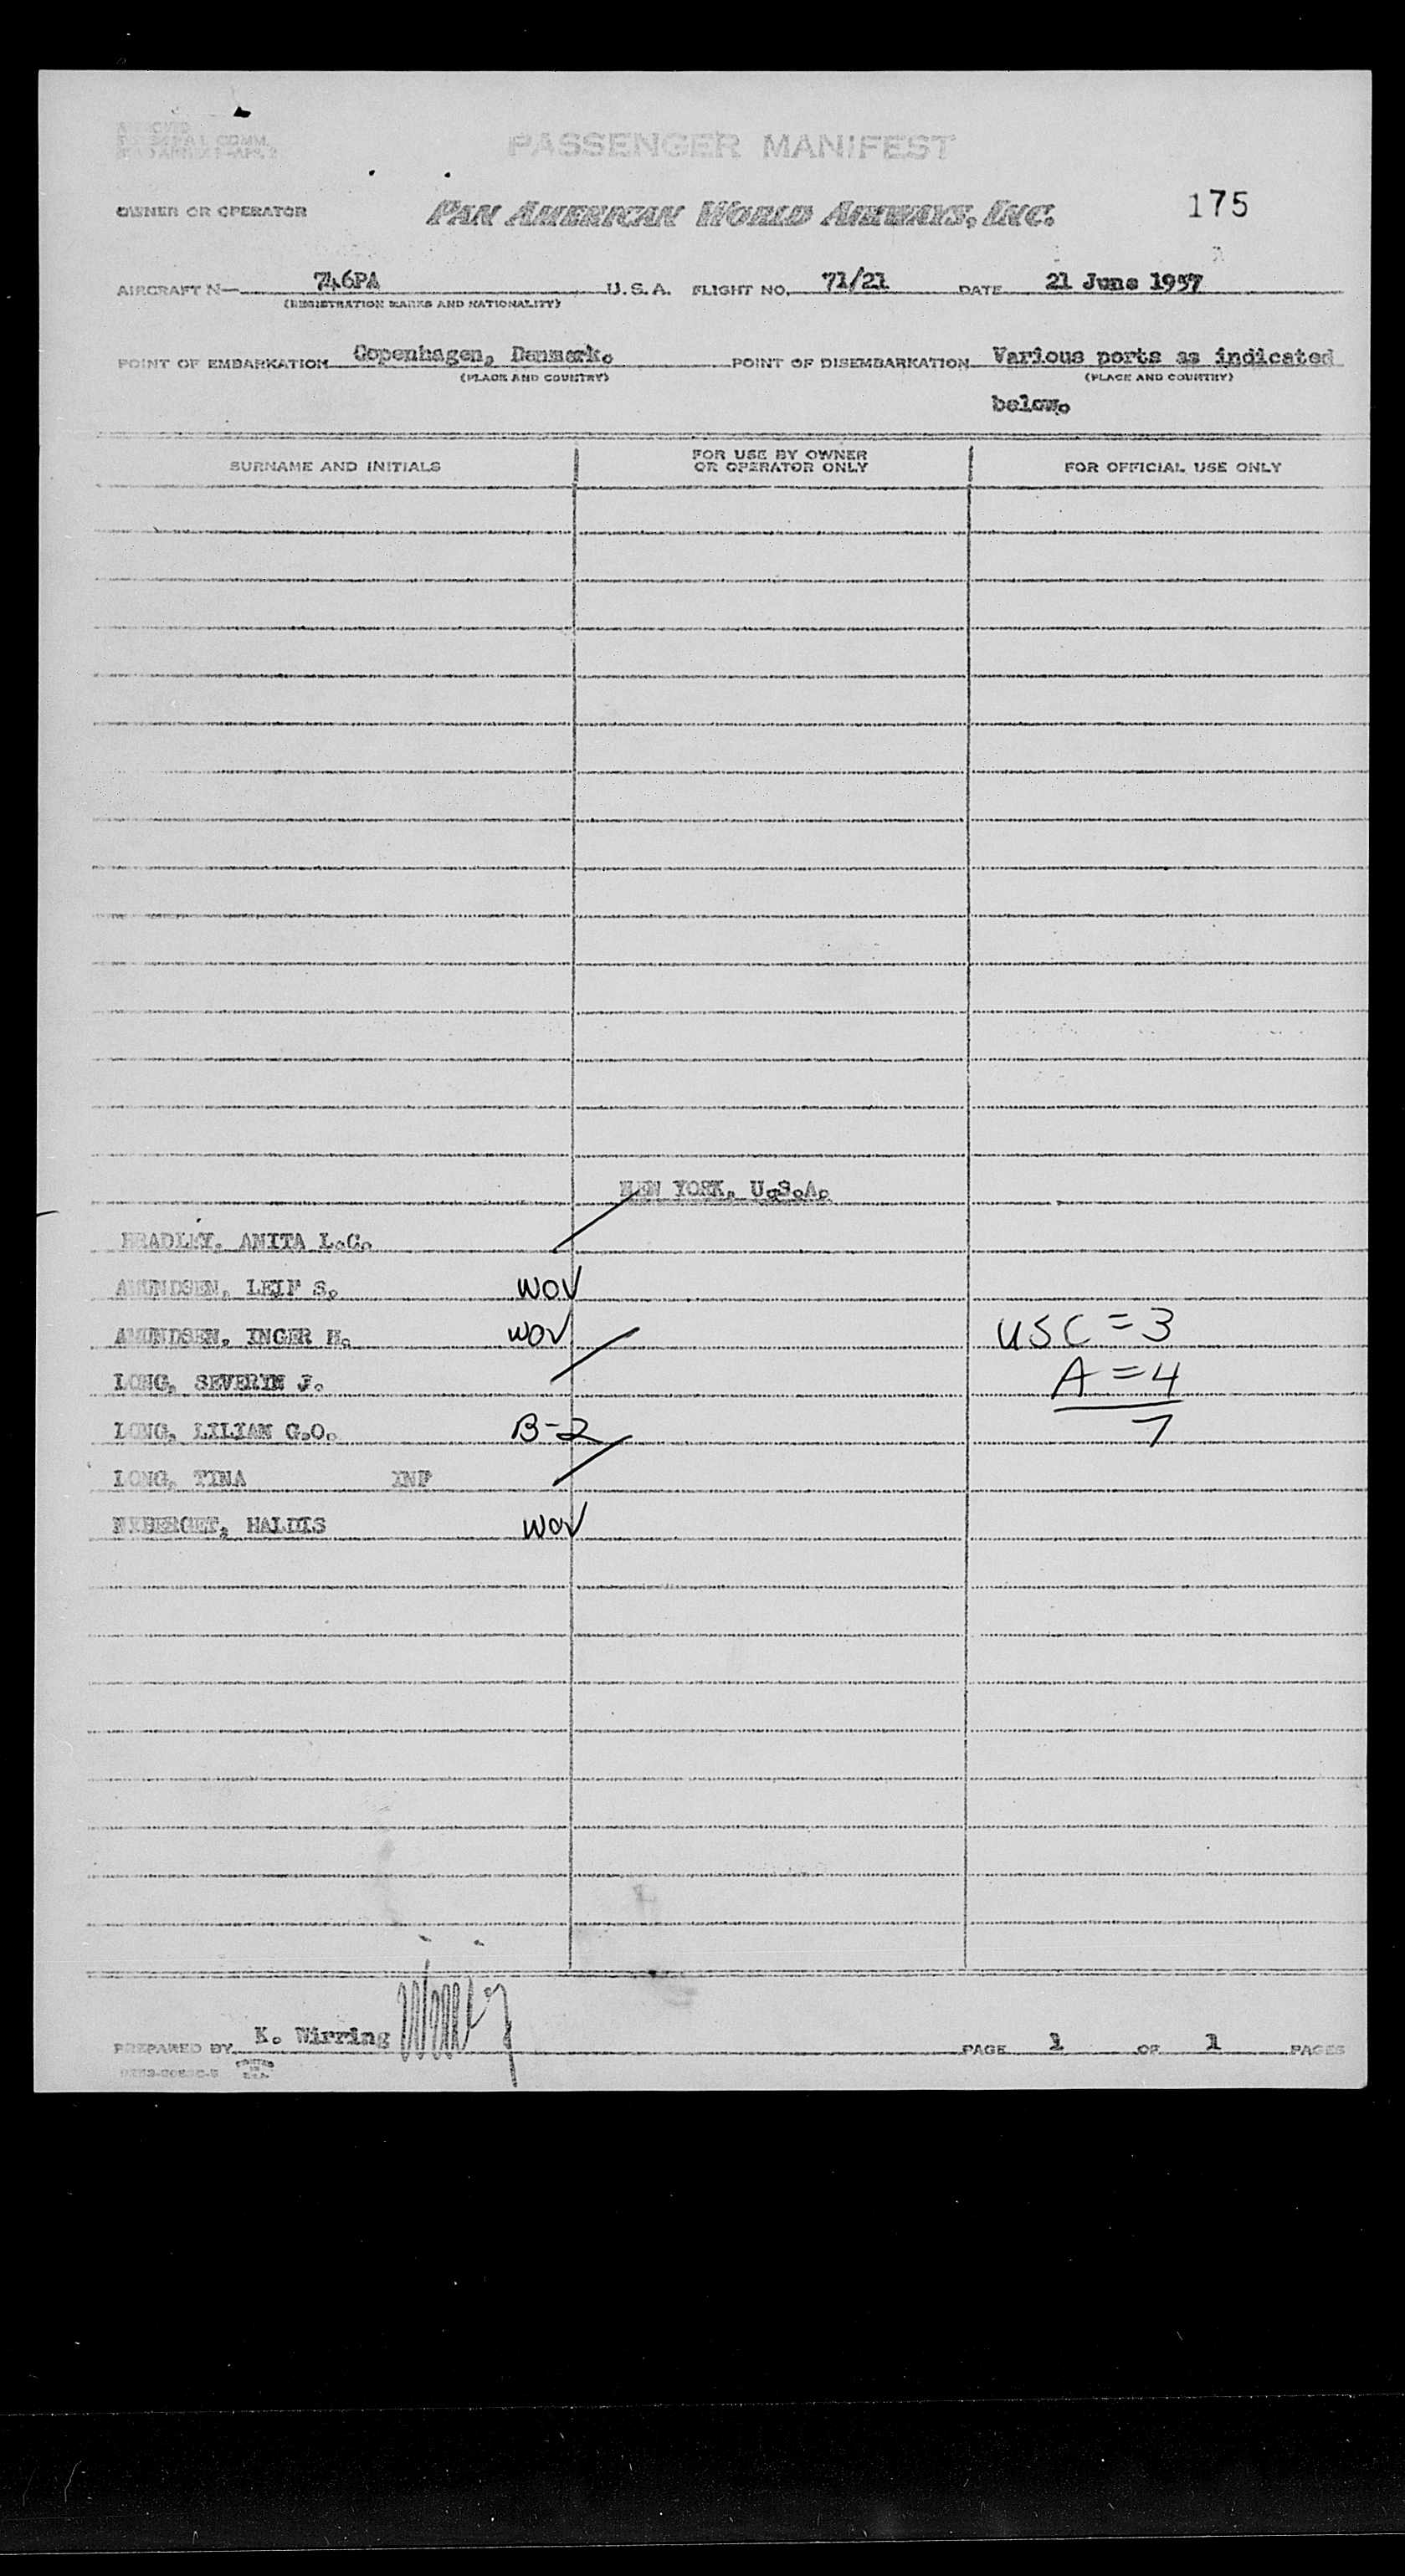 PASSENGER MANIFEST
OWNER OR OPERATOR PAN AMERICAN WORLD AIRWAYS, INC. 175
AIRCRAFT N— 746PA U.S.A. FLIGHT NO. 71/21 DATE 21 June 1957
(REGISTRATION MARKS AND NATIONALITY)
POINT OF EMBARKATION Copenhagen, Denmark. POINT OF DISEMBARKATION Various ports as indicated
(PLACE AND COUNTRY) (PLACE AND COUNTRY)
below.
SURNAME AND INITIALS FOR USE BY OWNER OR OPERATOR ONLY FOR OFFICIAL USE ONLY
NEW YORK, U.S.A.
BRADLEY, ANITA L.C.
AMUNDSEN, LEIF S. WOV
AMUNDSEN, INGER H. WOV USC = 3
LONG, SEVERIN J. A = 4
LONG, LILIAN G.O. B-2 7
LONG, TINA INF
HALDIS WOV
PREPARED BY K. Wirring PAGE 1 OF 1 PAGES